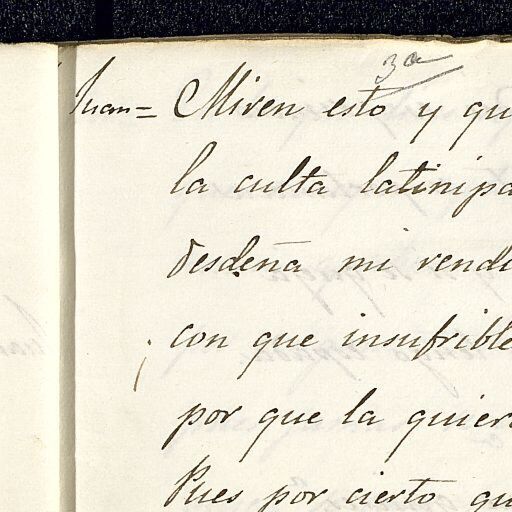 3a
Juan= Miren esto y qu
la culta latinipa
desdeña mi rendi
con que insufrible
por que la quier
Pues por cierto qu